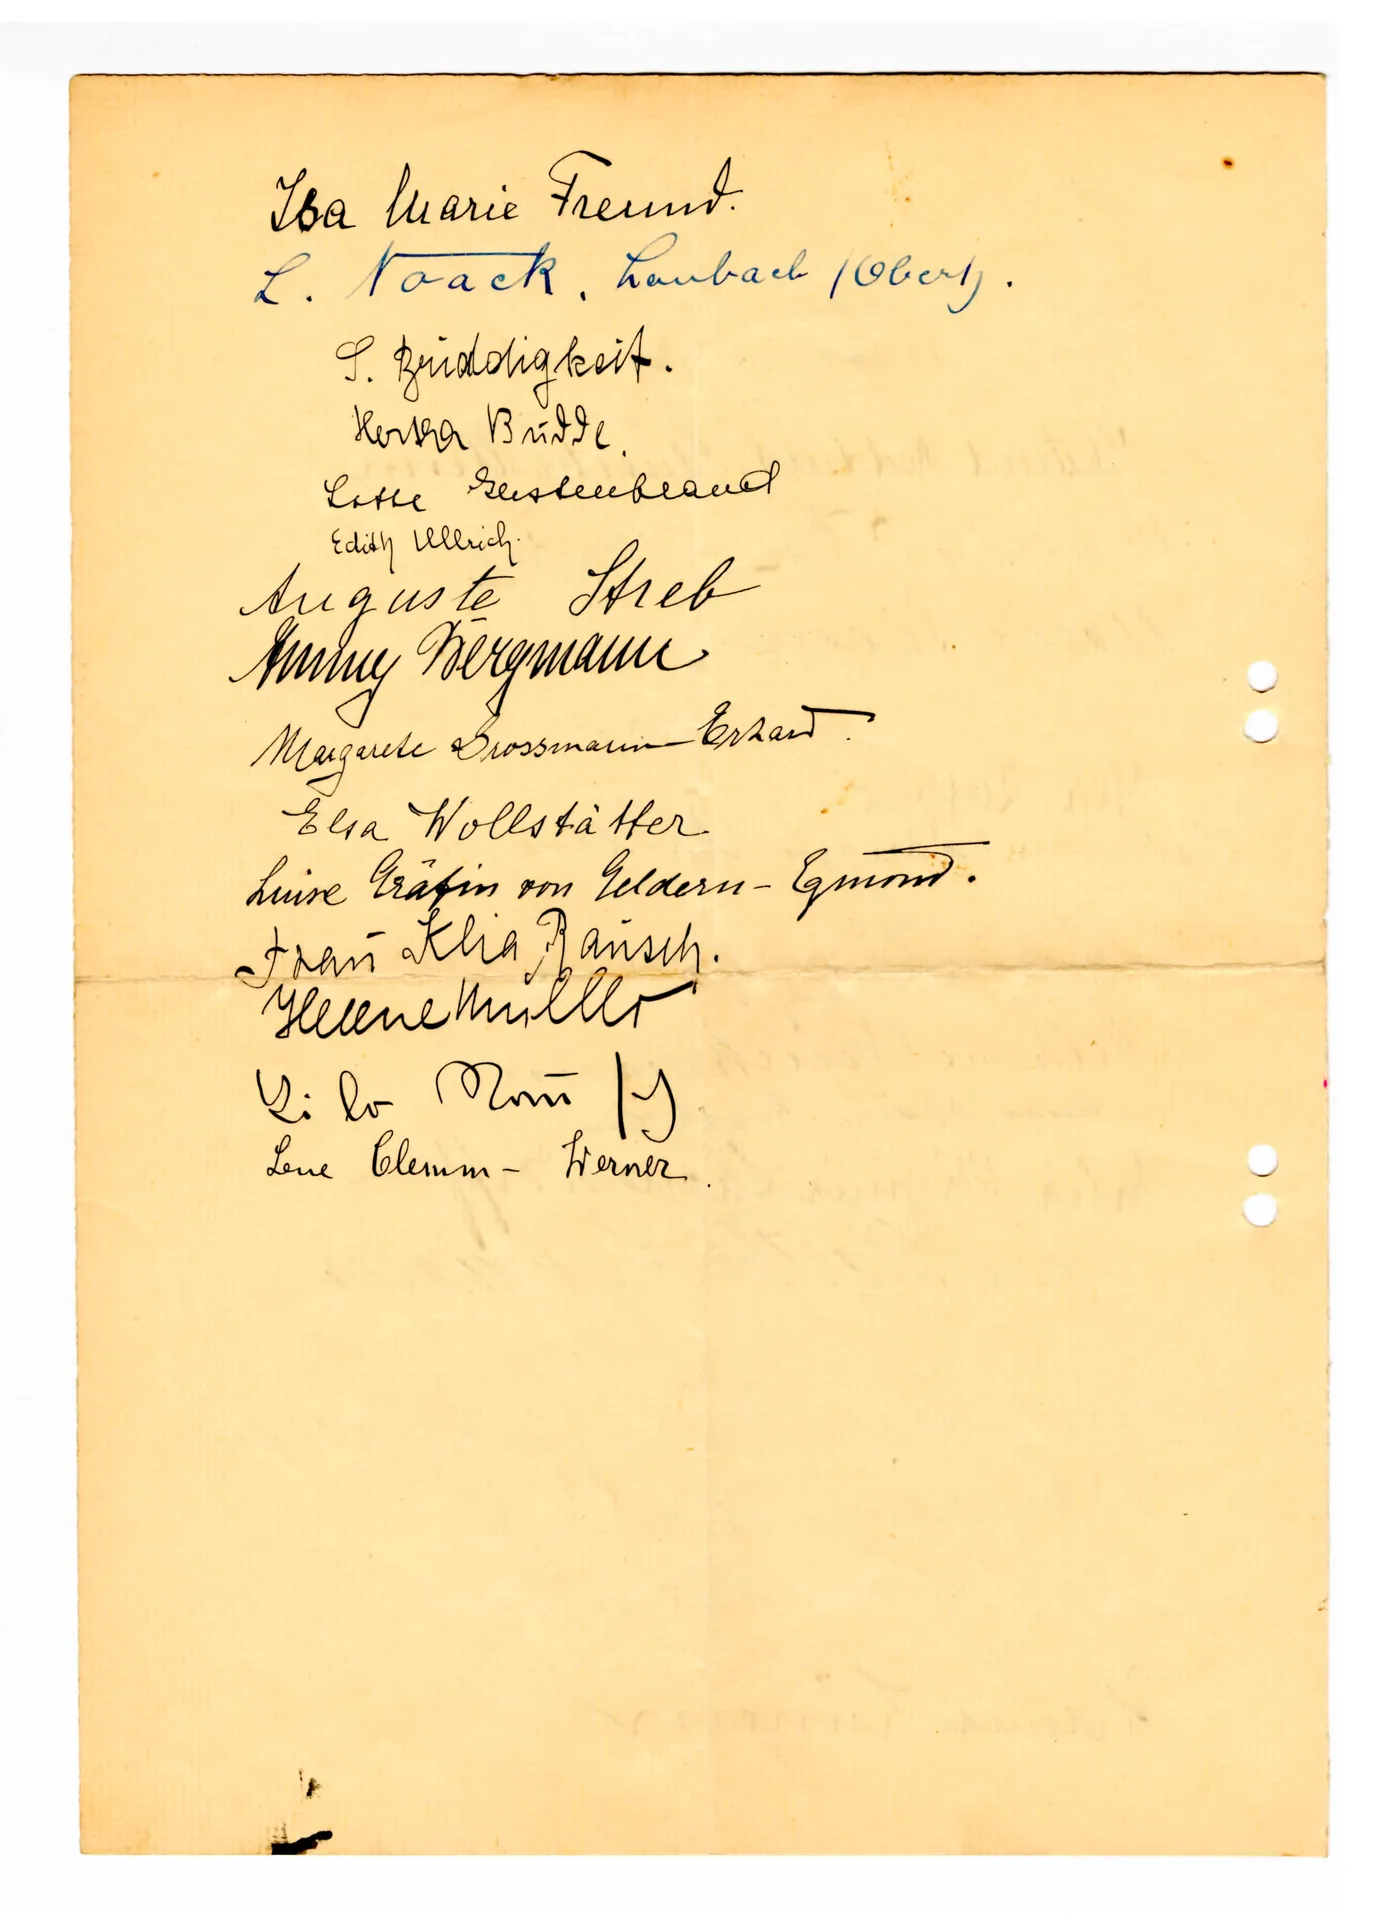 Isa Marie Freund.
L. Noack, Laubach (Oberh).
S. Bruddigkeit.
Hertha Budde.
Lotte Gerstenbrand
Edith Ullrich.
Auguste Streb
Anny Bergmann
Margarete Grossmann-Erhard.
Elsa Wollstätter.
Luise Gräfin von Geldern-Egmond.
Frau Klia Rausch.
Helene Müller
Lilo
Lene Clemm-Werner.